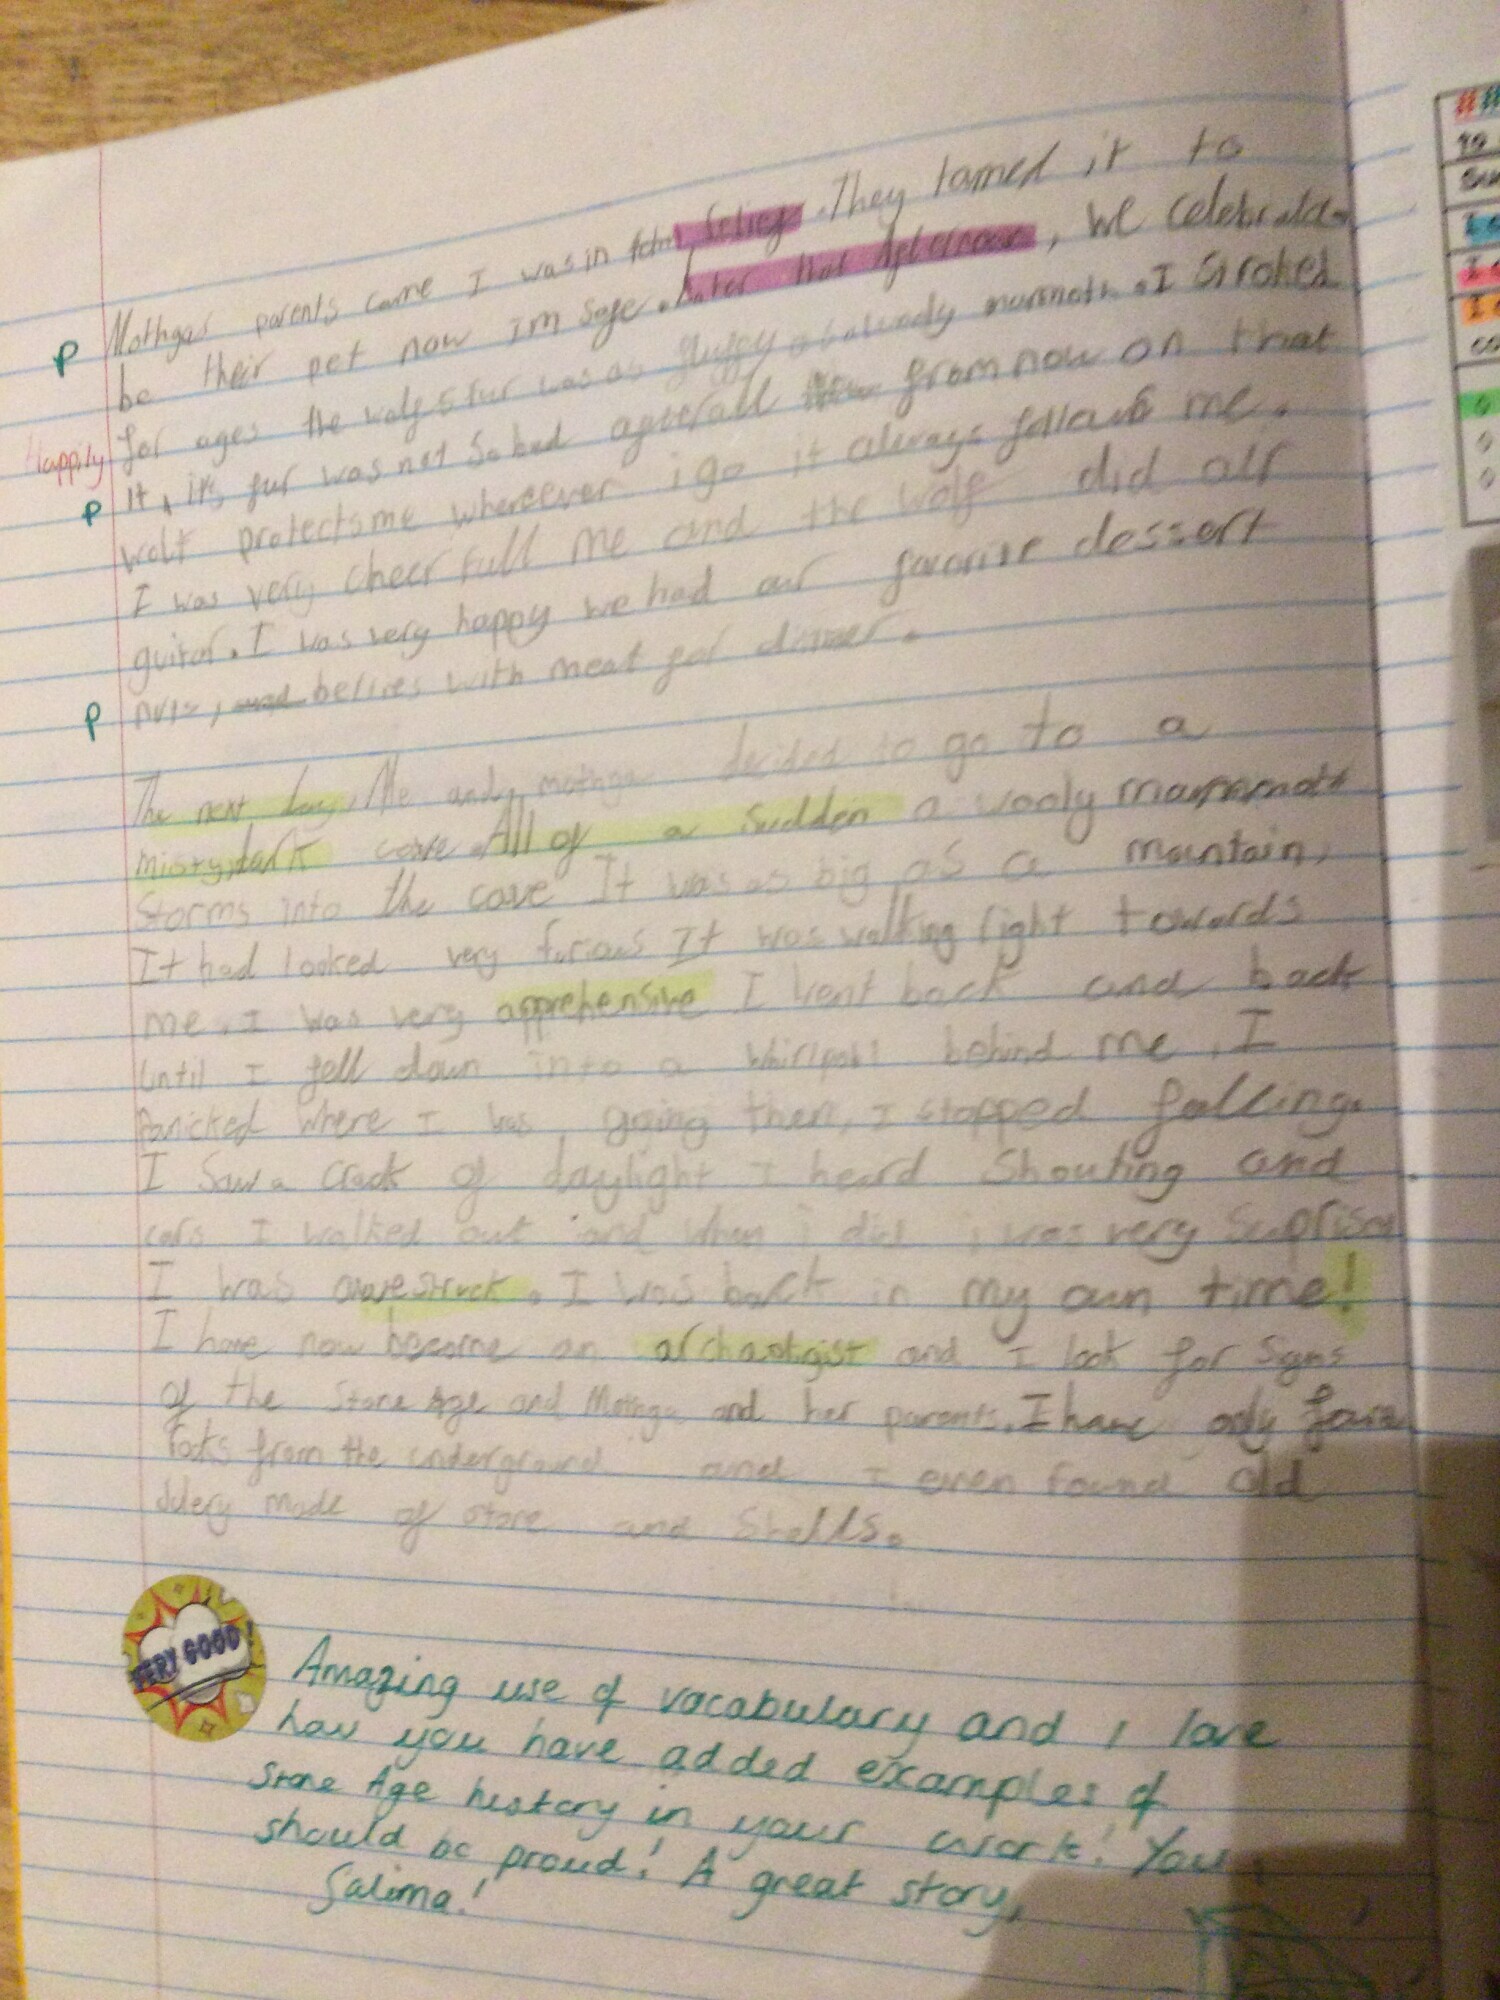 P Mothgas parents came I was in relief. They tamed it to
be their pet now im safe. Later that afternoon, we celebrated
for ages the wolfs fur was as fluffy a bloody mammoth. I stroked
Happily
P it, it's fur was not so bad afterall from now on that
wolf protects me whereever i go it always follows me.
I was very cheerfull me and the wolf did air
guitar. I was very happy we had our favorite dessart
P nuts, berries with meat for dinner.
The next day, Me and mothga decided to go to a
misty, dark cave. All of a sudden a wooly mammoth
storms into the cave It was as big as a mountain,
It had looked very furious It was walking right towards
me. I was very apprehensive I went back and back
until I fell down into a whirlpool behind me. I
panicked where I was going then, I stopped falling.
I saw a crack of daylight I heard shouting and
cars I walked out and when i did i was very suprised
I was awestruck. I was back in my own time!
I have now become an archaoligist and I look for signs
of the Stone Age and Mothga and her parents. I have only
rocks from the underground and I even found old
made of stone and shells.
VERY GOOD!
Amazing use of vocabulary and I love
how you have added examples of
Stone Age history in your work! You
should be proud! A great story,
Salima!